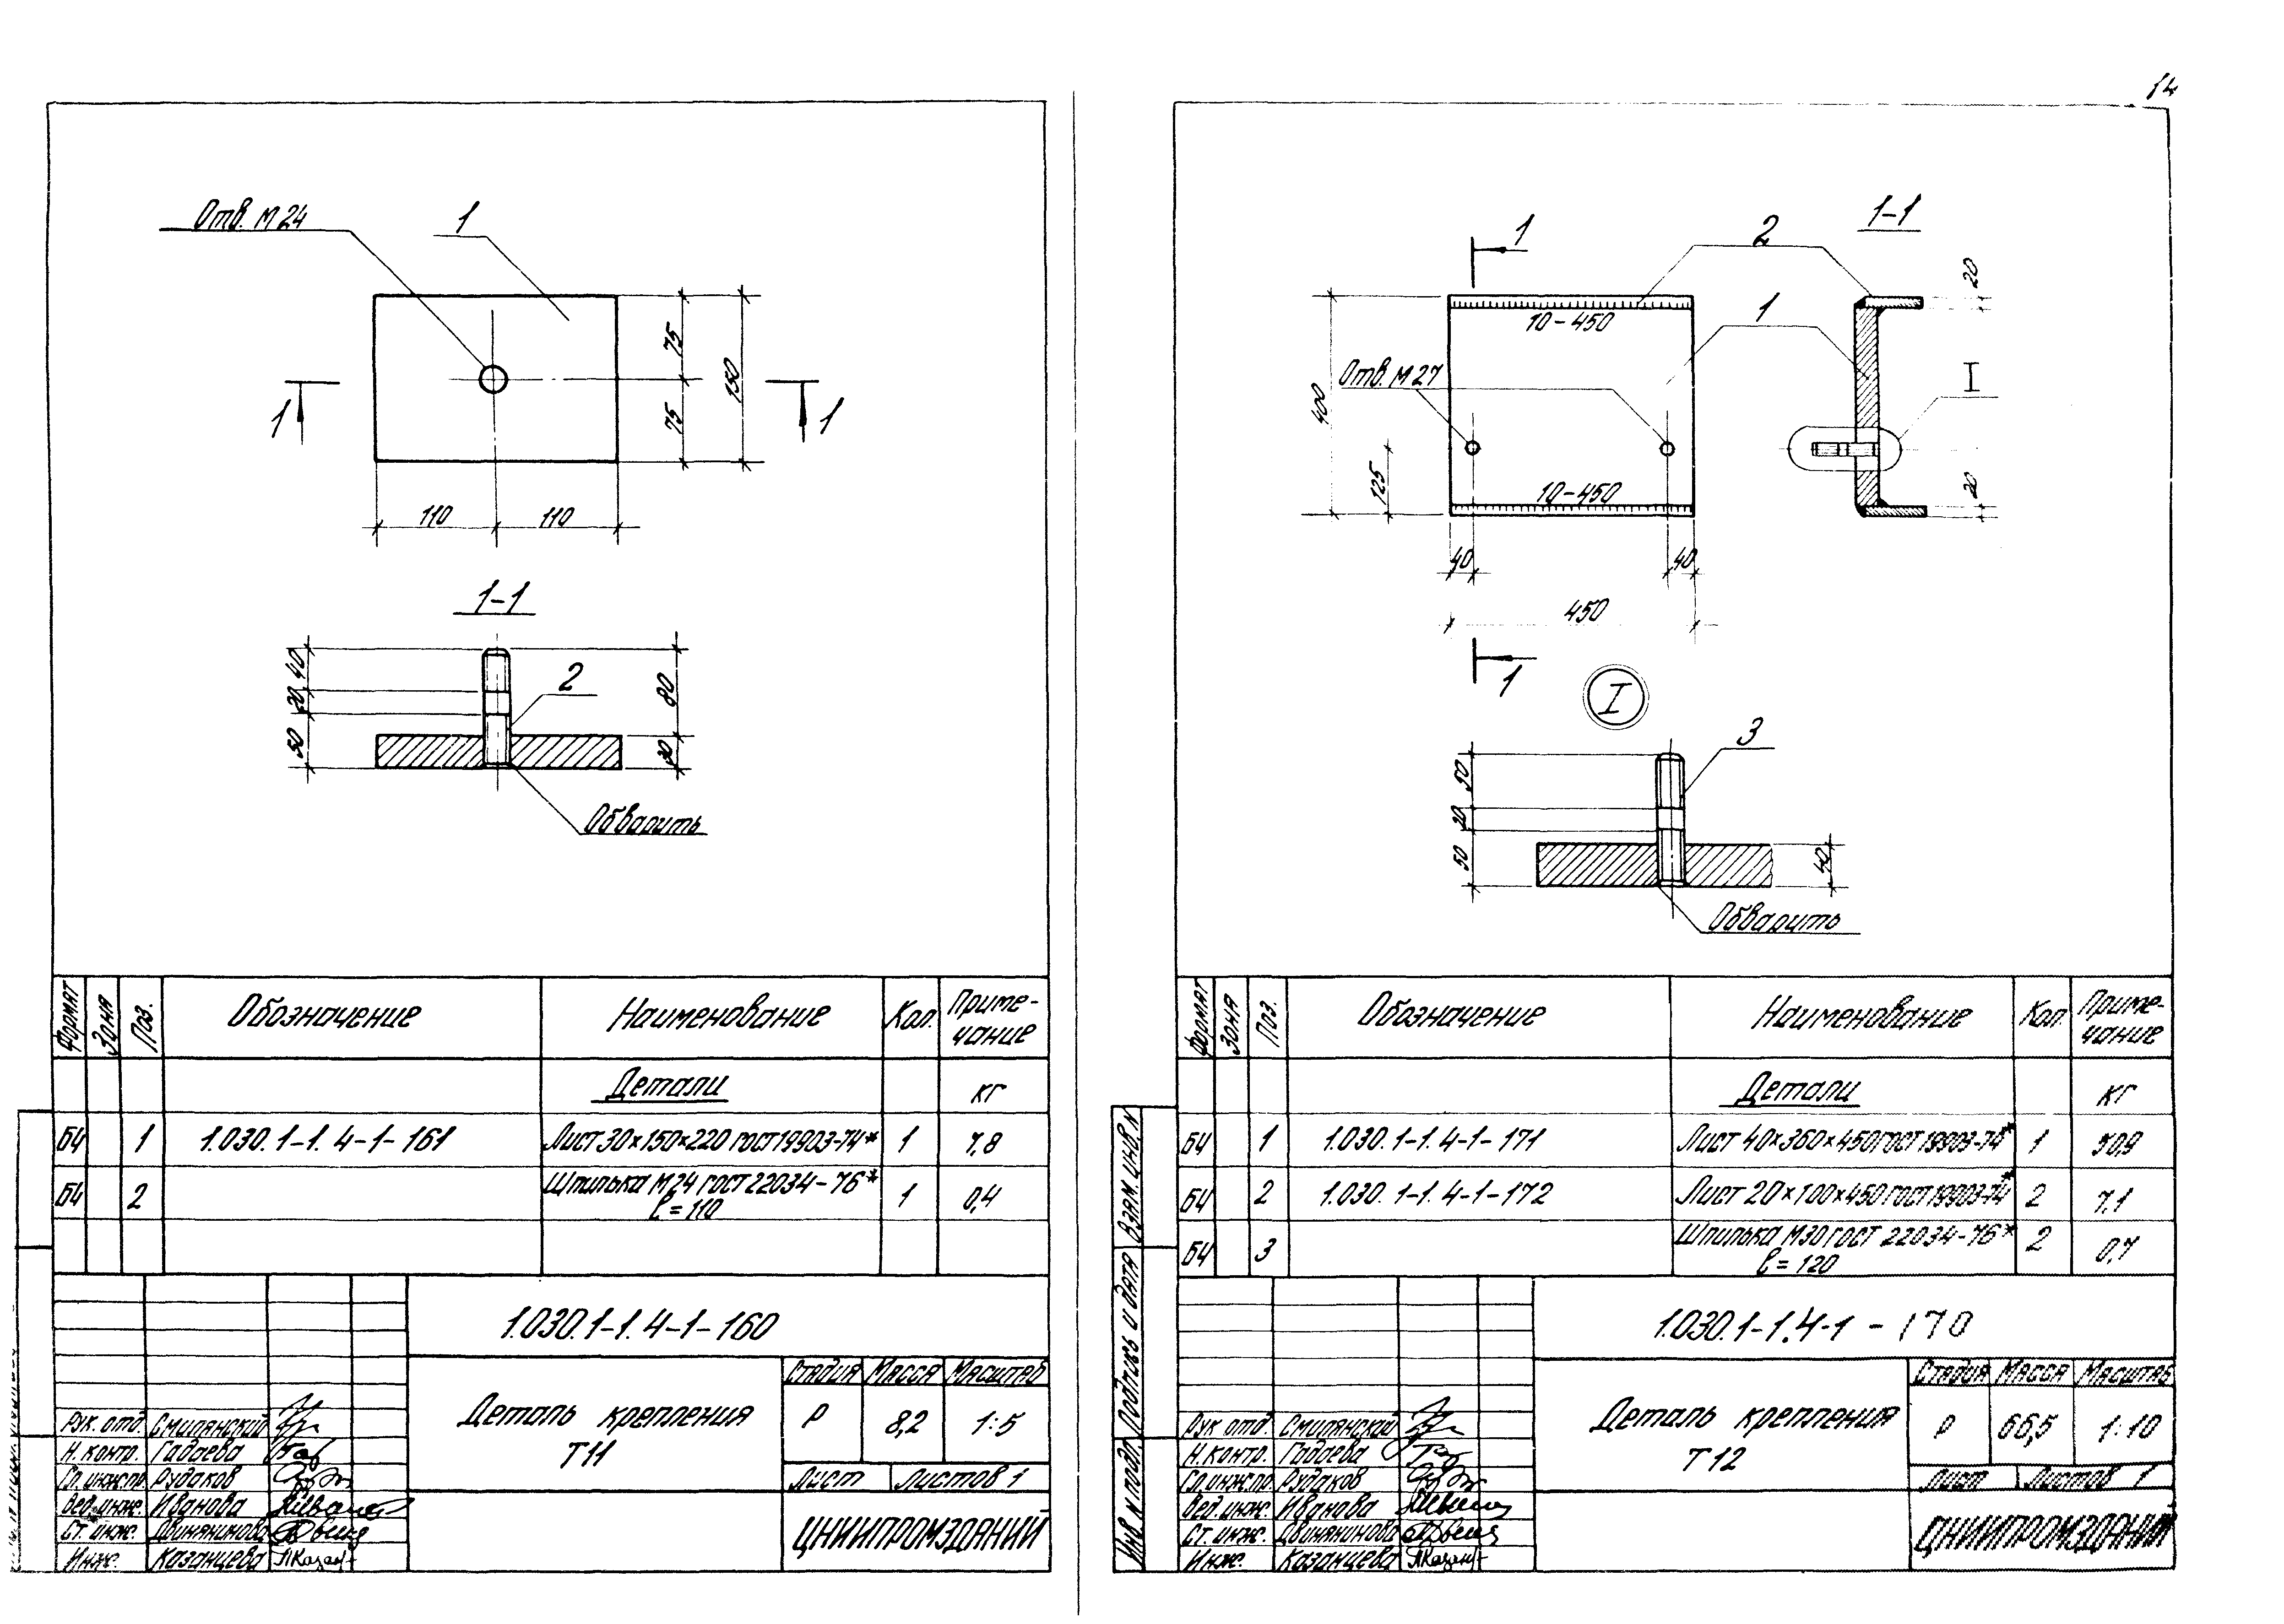 14
Отв. М24
1
75
150
75
1
1
110
110
1-1
40
20
50
2
80
30
Обварить
Формат
Зона
Поз.
Обозначение
Наименование
Кол.
Приме-
чание
Детали
кг
БЧ 1 1.030.1-1.4-1-161 Лист 30×150×220 ГОСТ 19903-74* 1 7,8
БЧ 2 Шпилька М24 ГОСТ 22034-76* 1 0,4
ℓ=110
1.030.1-1.4-1-160
Деталь крепления
Т11
Стадия Масса Масштаб
Р 8,2 1:5
Лист Листов 1
ЦНИИПРОМЗДАНИЙ
Рук. отд. Смилянский
Н. контр. Гадаева
Гл. инж.пр. Рудаков
Вед. инж. Иванова
Ст. инж. Двинянинова
Инж. Казанцева
1
2
1-1
20
10-450
1
Отв. М27
400
125
10-450
I
20
40
40
450
1
I
3
50
20
50
40
Обварить
Формат
Зона
Поз.
Обозначение
Наименование
Кол.
Приме-
чание
Детали
кг
БЧ 1 1.030.1-1.4-1-171 Лист 40×360×450 ГОСТ 19903-74* 1 50,9
БЧ 2 1.030.1-1.4-1-172 Лист 20×100×450 ГОСТ 19903-74* 2 7,1
БЧ 3 Шпилька М30 ГОСТ 22034-76* 2 0,7
ℓ=120
1.030.1-1.4-1-170
Деталь крепления
Т12
Стадия Масса Масштаб
Р 66,5 1:10
Лист Листов 1
ЦНИИПРОМЗДАНИЙ
Рук. отд. Смилянский
Н. контр. Гадаева
Гл. инж.пр. Рудаков
Вед. инж. Иванова
Ст. инж. Двинянинова
Инж. Казанцева
Взам. инв. N
Подпись и дата
Инв. N подл.